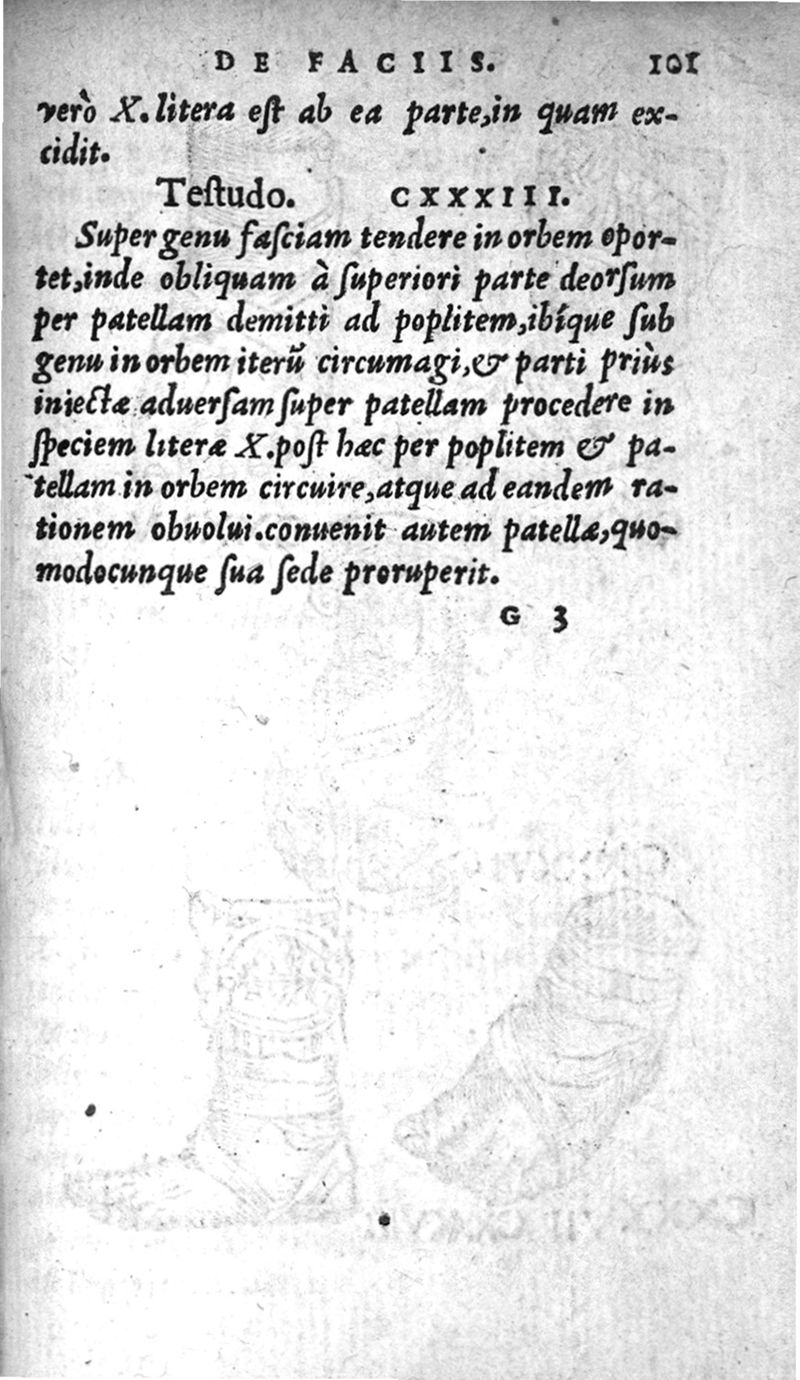 DE FACIIS. 101
verò X. litera eſt ab ea parte, in quam ex-
cidit.
Teſtudo. CXXXIII.
Super genu faſciam tendere in orbem opor-
tet, inde obliquam à ſuperiori parte deorſum
per patellam demitti ad poplitem, ibíque ſub
genu in orbem iterũ circumagi, & parti priùs
iniectæ aduerſam ſuper patellam procedere in
ſpeciem literæ X. poſt hæc per poplitem & pa-
tellam in orbem circuire, atque ad eandem ra-
tionem obuolui. conuenit autem patellæ, quo-
modocunque ſua ſede proruperit.
G 3